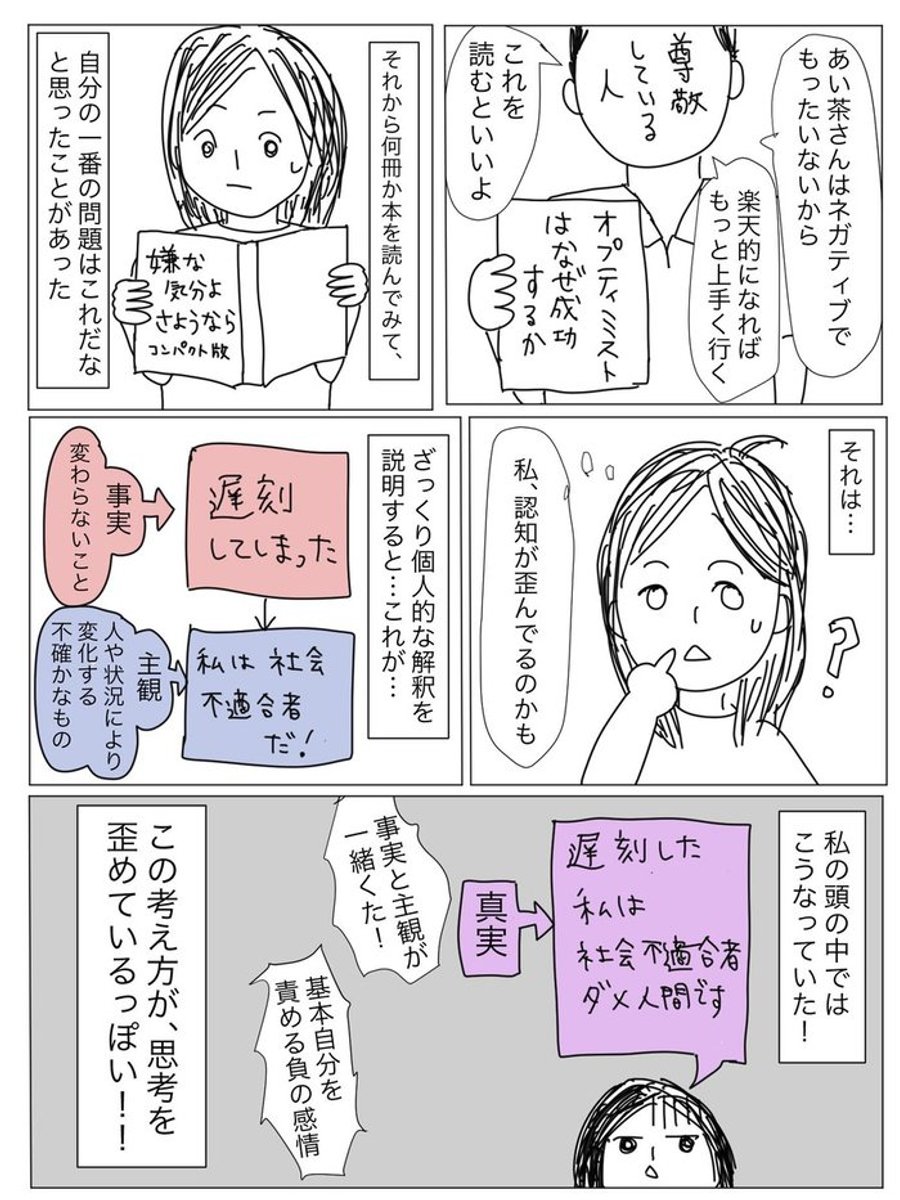 あい茶さんはネガティブで
もったいないから
楽天的になれば
もっと上手く行く
尊敬
している
人
これを
読むといいよ
オプティミスト
はなぜ成功
するか
それから何冊か本を読んでみて、
嫌な
気分よ
さようなら
コンパクト版
自分の一番の問題はこれだな
と思ったことがあった
それは…
私、認知が歪んでるのかも
?
ざっくり個人的な解釈を
説明すると…これが…
遅刻
してしまった
事実
変わらないこと
私は社会
不適合者
だ!
主観
人や状況により
変化する
不確かなもの
私の頭の中では
こうなっていた!
遅刻した
私は
社会不適合者
ダメ人間です
真実
事実と主観が
一緒くた!
基本自分を
責める負の感情
この考え方が、思考を
歪めているっぽい!!